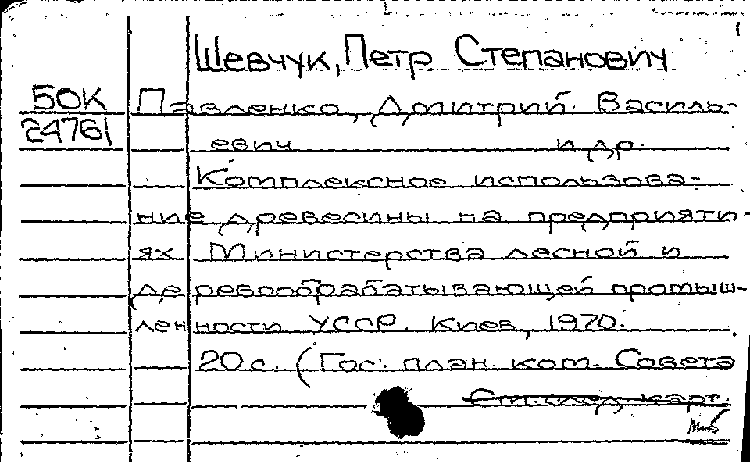 Шевчук, Петр Степанович
50К Павленко, Дмитрий Василь-
24761 евич и др.
Комплексное использова-
ние древесины на предприяти-
ях Министерства лесной и
деревообрабатывающей промыш-
ленности УССР. Киев, 1970.
20 с. (Гос. план. ком. Совета
См. след. карт.